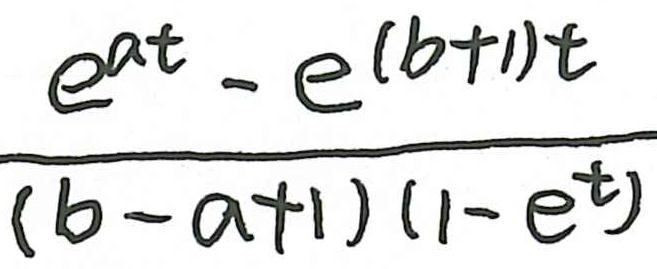 \frac{e^{at} - e^{(b+1)t}}{(b-a+1)(1-e^{t})}